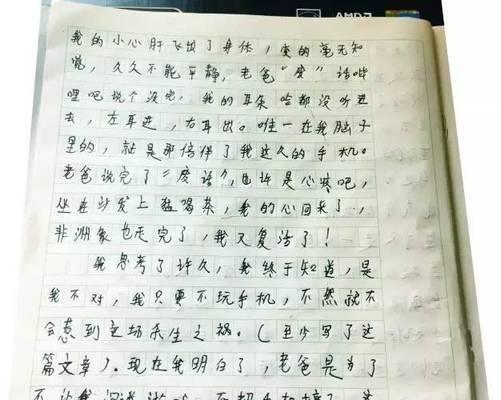 AMD
我的小心肝飞出了身体，变的毫无知
觉，久久不能平静，老爸"废"话哔
哩吧说个没完，我的耳朵啥都没听进
去，左耳进，右耳出。唯一在我脑子
里的，就是那陪伴了我这久的手机。
老爸说完了"废话"，也许是心凉吧，
坐在沙发上猛喝茶，我的心回来了，
非洲象也走完了，我又复活了！
我思考了许久，我终于知道，是
我不对，我只要不玩手机，不然就不
会惹到这场杀生之祸。（至少写了这
篇文章）。现在我明白了，老爸是为了
不让我沉迷游戏